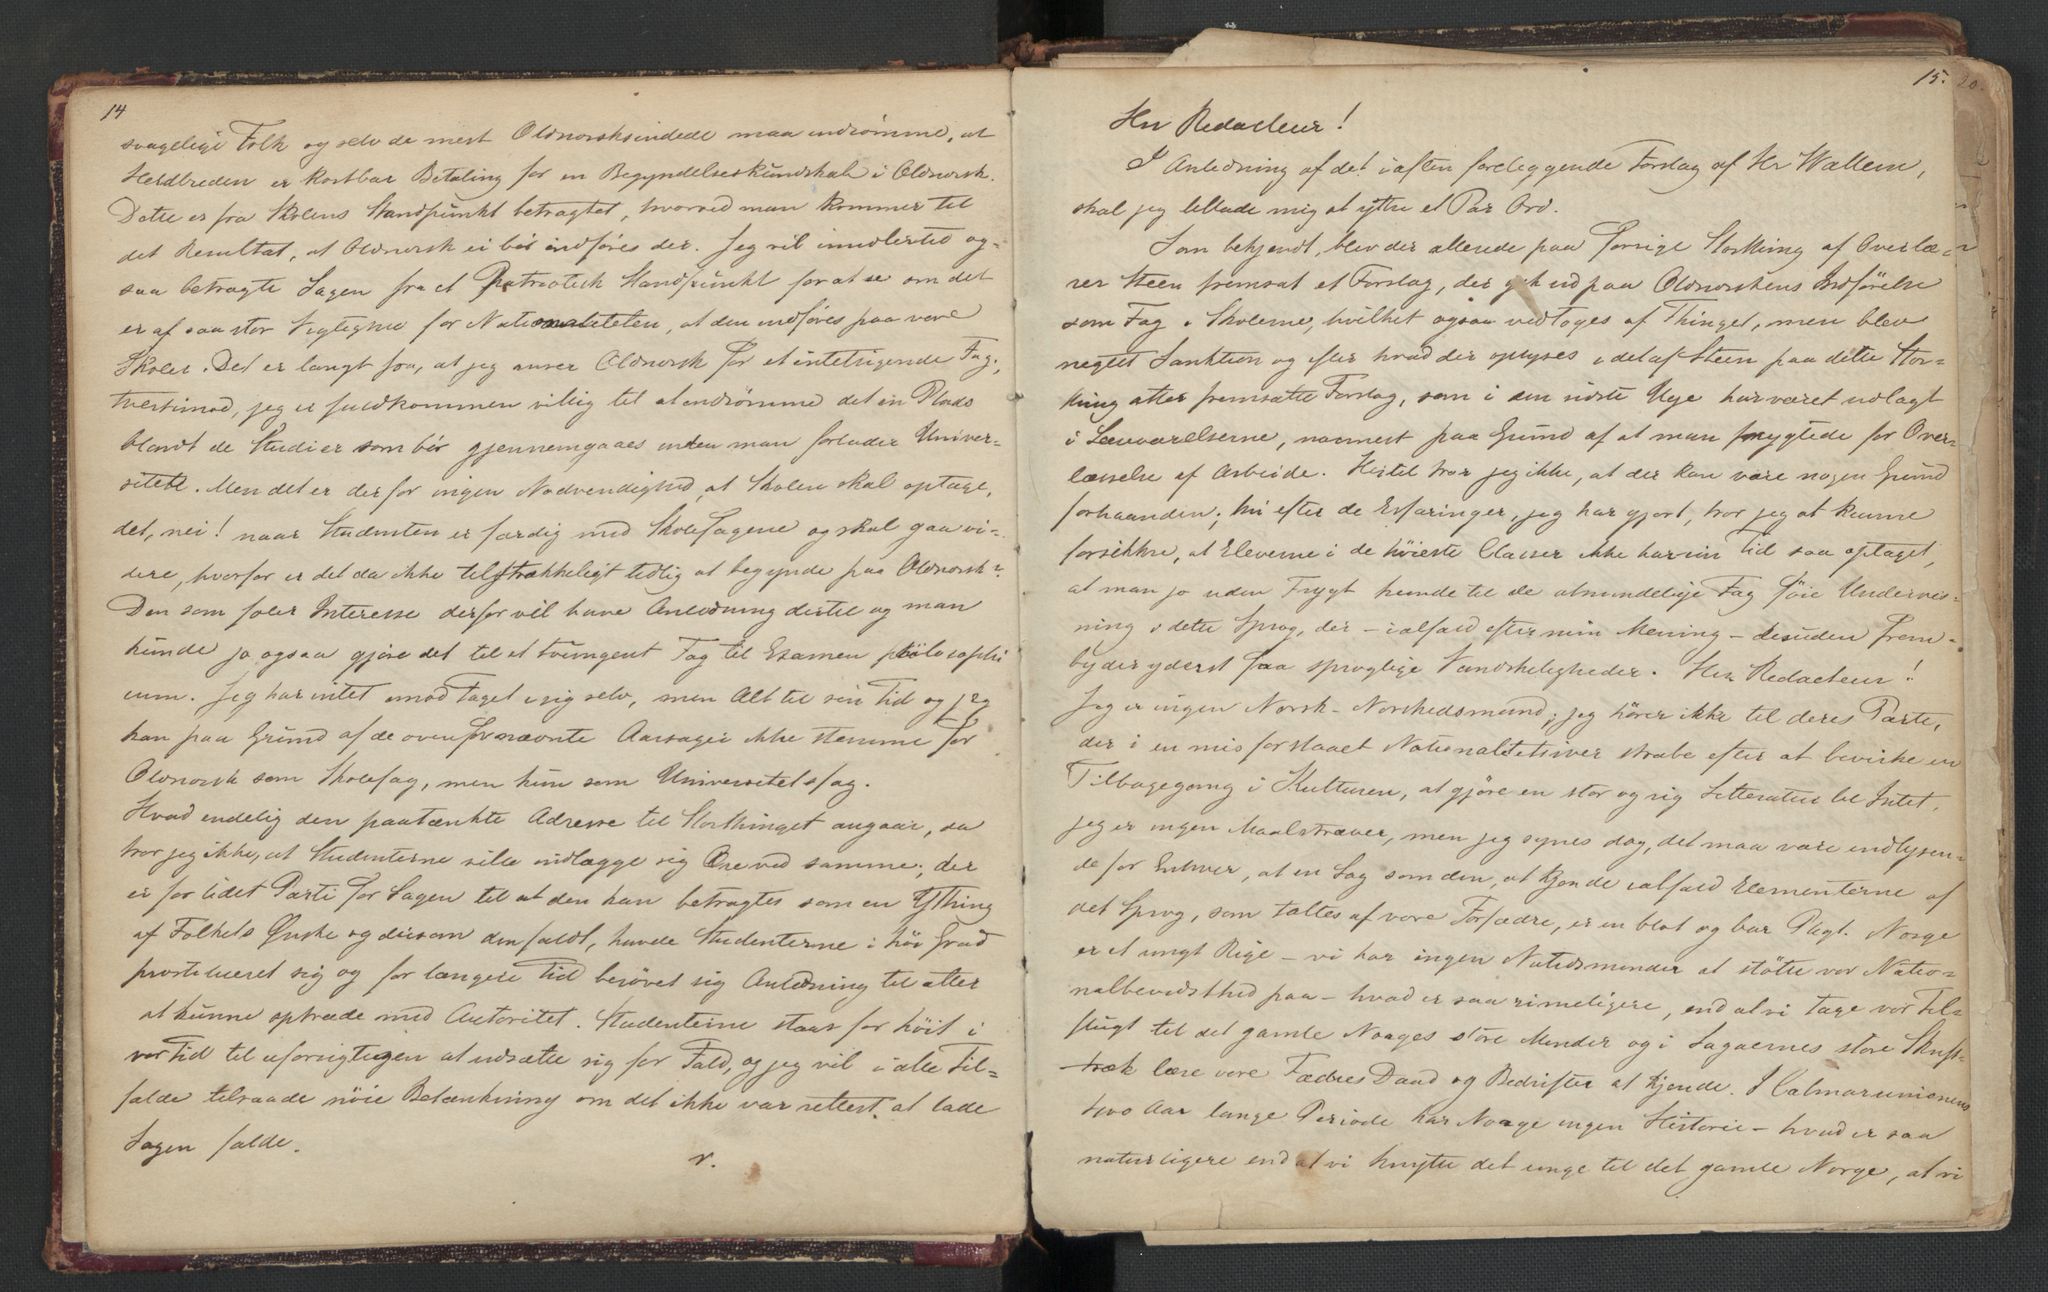 14
svagelige Folk og selv de mest Oldnorsksindede maa indrømme, at
Herdbreden er kostbar Betaling for en Begyndelseskundskab i Oldnorsk.
Dette er fra Skolens Standpunkt betragtet, hvorved man kommer til
det Resultat, at Oldnorsk ei bør indføres der. Jeg vil imidlertid og-
saa betragte Sagen fra et Patriotisk Standpunkt for at se om det
er af saa stor Vigtighed for Nationaliteten, at den indføres paa vore
Skoler. Det er langt fra, at jeg anser Oldnorsk for et intetsigende Fag,
tvertimod, jeg er fuldkommen villig til at indrømme det en Plads
blandt de Studier som bør gjennemgaaes inden man forlader Univer-
sitetet. Men det er derfor ingen Nødvendighed, at Skolen skal optage,
det, nei! naar Studenten er færdig med Skolefagene og skal gaa vi-
dere, hvorfor er det da ikke tilstrækkeligt tidlig at begynde paa Oldnorsk?
Den som føler Interesse derfor vil have Anledning dertil og man
kunde jo ogsaa gjøre det til et tvungent Fag til Examen philosophi
cum. Jeg har intet imod Faget i sig selv, men Alt til sin Tid og jeg
kan paa Grund af de ovenfor nævnte Aarsager ikke stemme for
Oldnorsk som Skolefag, men kun som Universitetsfag.
Hvad endelig den paatænkte Adresse til Storthinget angaar, da
tror jeg ikke, at Studenterne ville indlægge sig Ære ved samme; der
er for lidet Parti for Sagen til at den kan betragtes som en Ytring
af Folkets Ønske og dersom den faldt, havde Studenterne i høi Grad
prostitueret sig og for længere Tid berøvet sig Anledning til atter
at kunne optræde med Autoritet. Studenterne staar for høit i
vor Tid til uforsigtigen at udsætte sig for Fald, og jeg vil i alle Til-
fælde tilraade nøie Betænkning om det ikke var rettest at lade
Sagen falde.
r.
15.
20.
Hr Redacteur!
I Anledning af det iaften foreliggende Forslag af Hr Wallem,
skal jeg tillade mig at yttre et Par Ord.
Som bekjendt, blev der allerede paa forrige Storthing af Overlæ-
rer Steen fremsat et Forslag, der gik ud paa Oldnorskens Indførelse
som Fag i Skolerne, hvilket ogsaa vedtoges af Thinget, men blev
negtet Sanktion og efter hvad der oplyses i det af Steen paa dette Stor-
thing atter fremsatte Forslag, som i den sidste Uge har været udlagt
i Læseværelserne, nærmest paa Grund af at man frygtede for Over-
læsselse af Arbeide. Hertil tror jeg ikke, at der kan være nogen Grund
forhaanden; thi efter de Erfaringer, jeg har gjort, tror jeg at kunne
forsikkre, at Eleverne i de høieste Classer ikke har sin Tid saa optaget,
at man jo uden Frygt kunde til de almindelige Fag føie Undervis-
ning i dette Sprog, der – ialfald efter min Mening – desuden frem-
byder yderst faa sproglige Vanskeligheder. Hr Redacteur!
Jeg er ingen Norsk-Norskhedsmand; jeg hører ikke til deres Parti,
der i en misforstaaet Nationalitetsiver stræbe efter at bevirke en
Tilbagegang i Kulturen, at gjøre en stor og rig Litteratur til Intet,
jeg er ingen Maalstræver, men jeg synes dog, det maa være indlysen-
de for Enhver, at en Sag som den, at kjende ialfald Elementerne af
det Sprog, som taltes af vore Forfædre, er en blot og bar Pligt. Norge
er et ungt Rige – vi har ingen Nutidsminder at støtte vor Natio-
nalbevidsthed paa – hvad er saa rimeligere, end at vi tage vor Til-
flugt til det gamle Norges store Minder og i Sagaernes store Skrift-
træk lære vore Fædres Daad og Bedrifter at kjende. I Calmarunionens
two Aar lange Periode har Norge ingen Historie – hvad er saa
naturligere end at vi knytte det unge til det gamle Norge, at vi